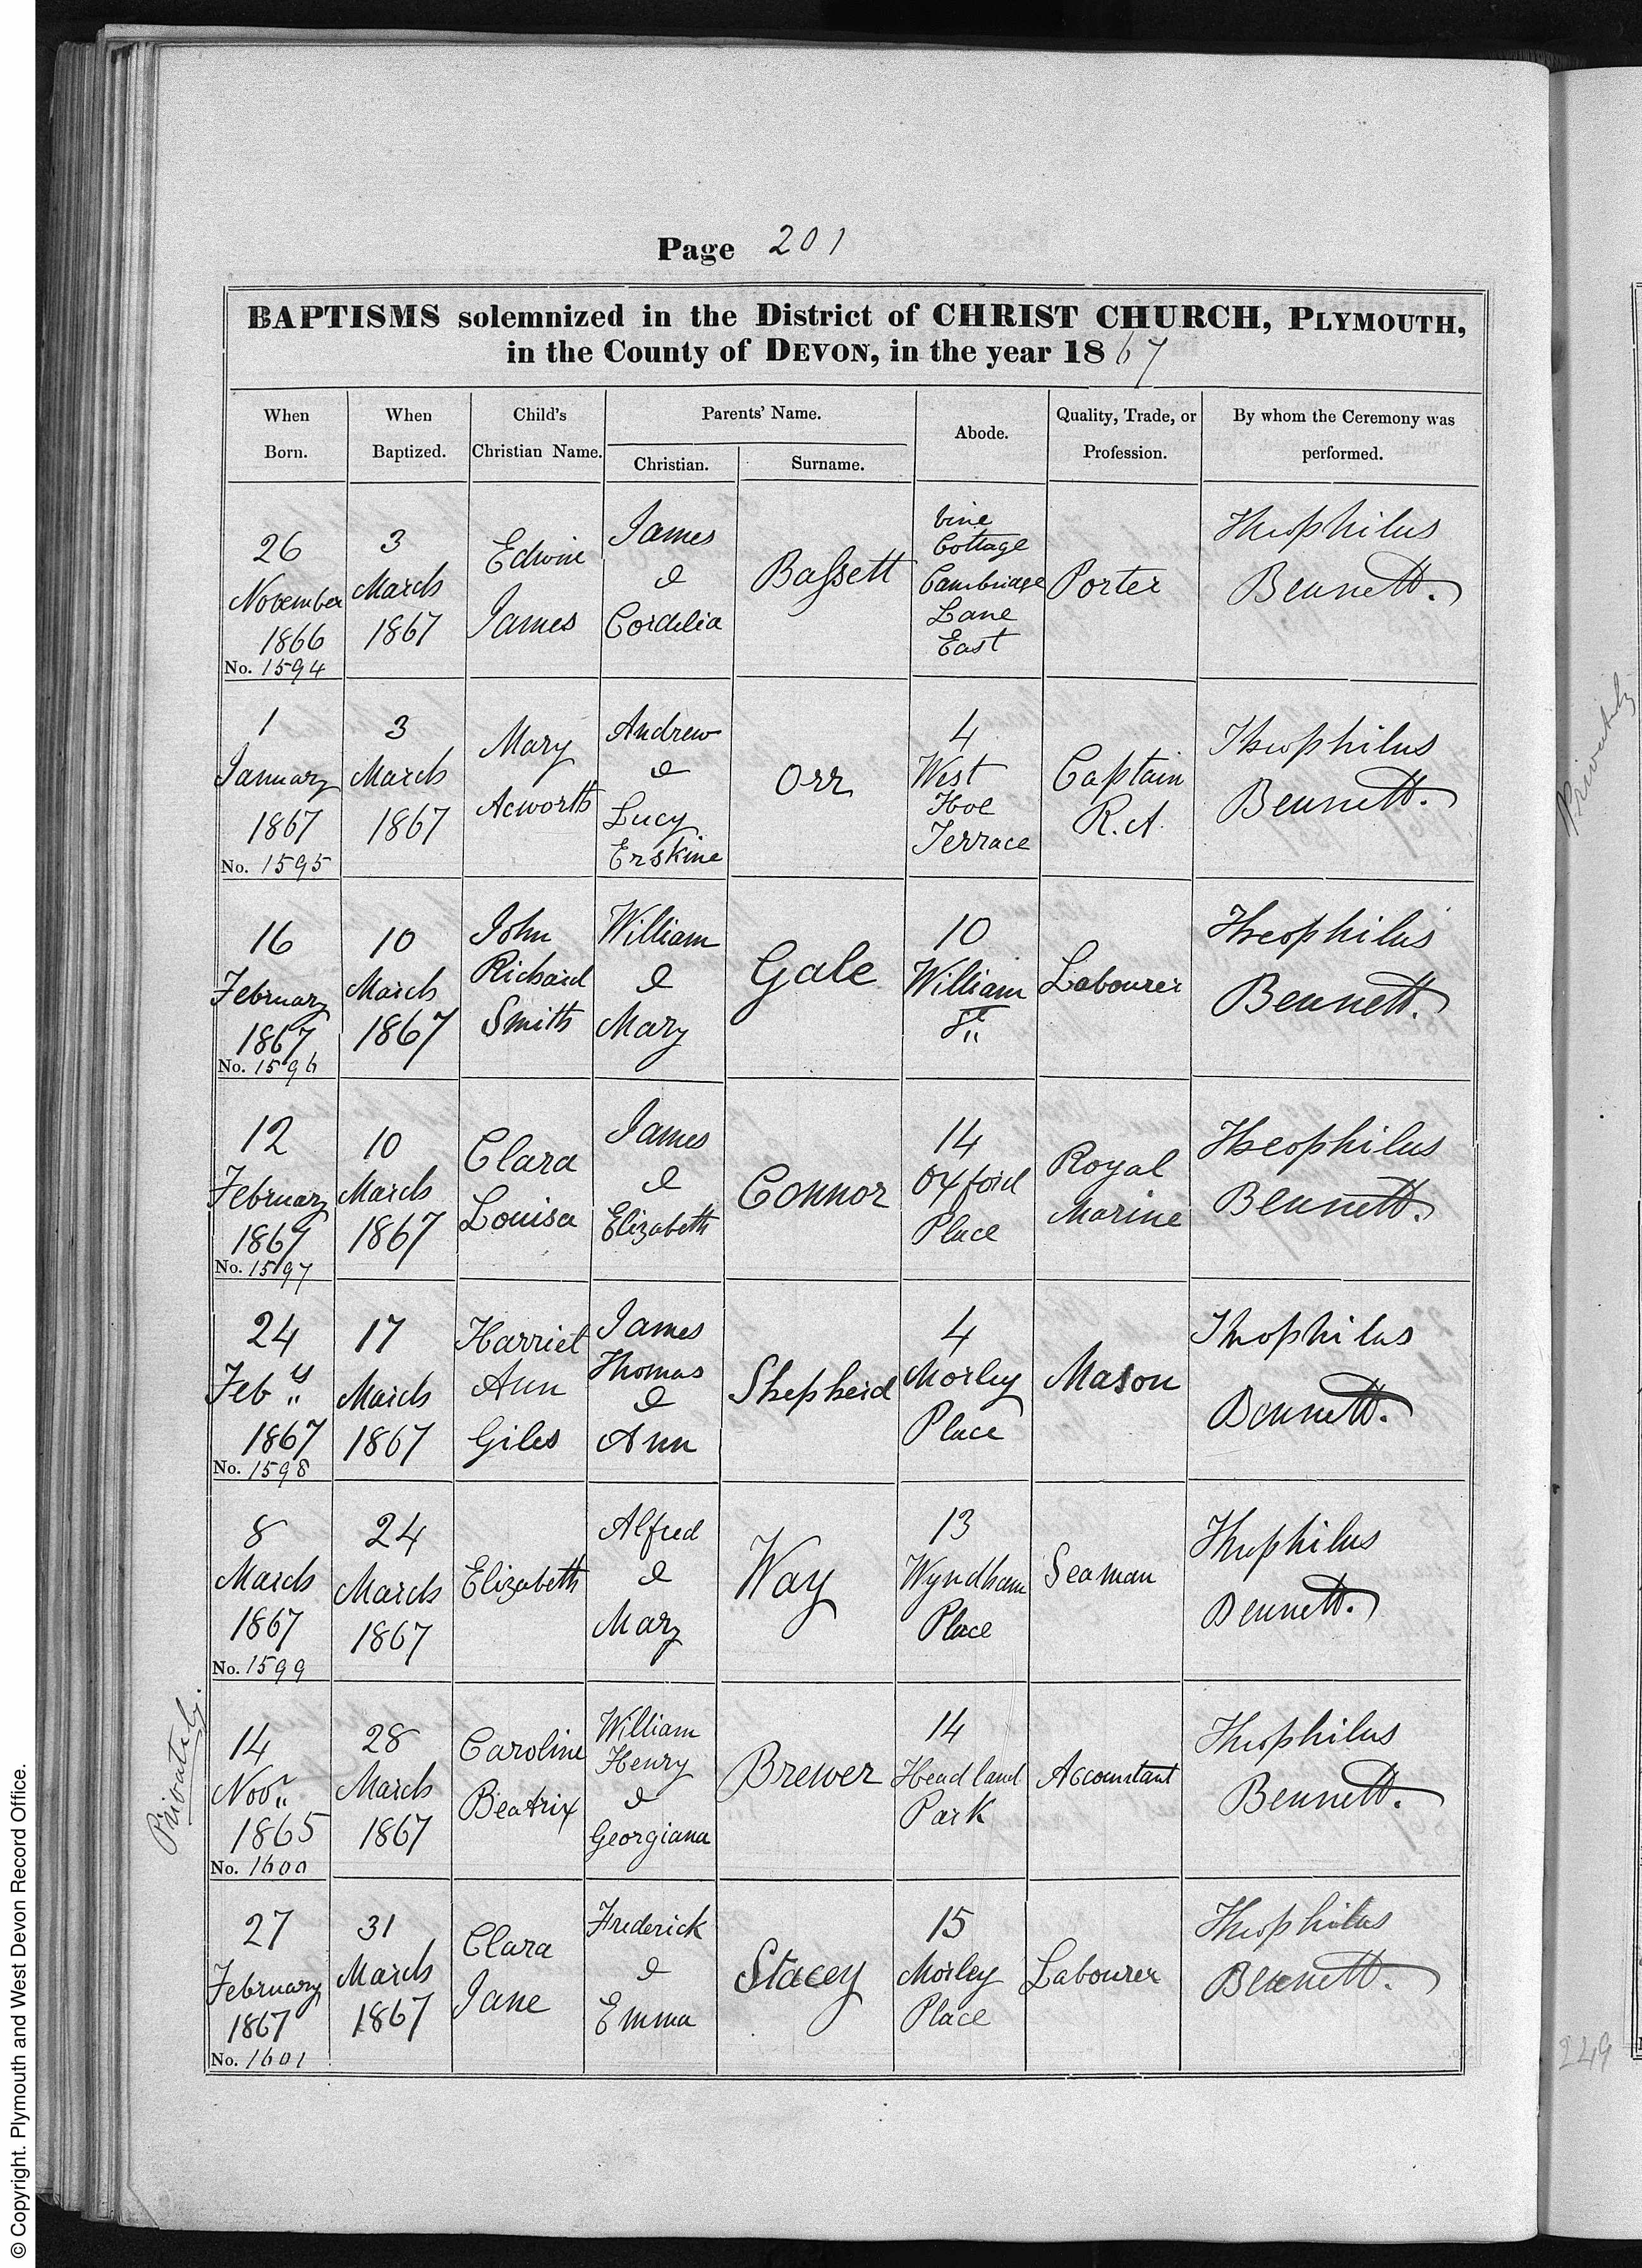 Page 201
BAPTISMS solemnized in the District of CHRIST CHURCH, PLYMOUTH,
in the County of DEVON, in the year 1867
When Born.
When Baptized.
Child's Christian Name.
Parents' Name.
Christian.
Surname.
Abode.
Quality, Trade, or Profession.
By whom the Ceremony was performed.
26
November
1866
No. 1594
3
March
1867
Edwin
James
James
&
Cordelia
Bassett
Vine
Cottage
Cambridge
Lane
East
Porter
Theophilus
Bennett.
1
January
1867
No. 1595
3
March
1867
Mary
Acworth
Andrew
&
Lucy
Erskine
Orr
4
West
Hoe
Terrace
Captain
R.A.
Theophilus
Bennett.
16
February
1867
No. 1596
10
March
1867
John
Richard
Smith
William
&
Mary
Gale
10
William
St.
Labourer
Theophilus
Bennett.
12
February
1867
No. 1597
10
March
1867
Clara
Louisa
James
&
Elizabeth
Connor
14
Oxford
Place
Royal
Marine
Theophilus
Bennett.
24
Feby
1867
No. 1598
17
March
1867
Harriet
Ann
Giles
James
Thomas
&
Ann
Shepherd
4
Morley
Place
Mason
Theophilus
Bennett.
8
March
1867
No. 1599
24
March
1867
Elizabeth
Alfred
&
Mary
Way
13
Wyndham
Place
Seaman
Theophilus
Bennett.
Privately.
14
Novr
1865
No. 1600
28
March
1867
Caroline
Beatrix
William
Henry
&
Georgiana
Brewer
14
Headland
Park
Accountant
Theophilus
Bennett.
27
February
1867
No. 1601
31
March
1867
Clara
Jane
Frederick
&
Emma
Stacey
15
Morley
Place
Labourer
Theophilus
Bennett.
Privately
249
© Copyright. Plymouth and West Devon Record Office.